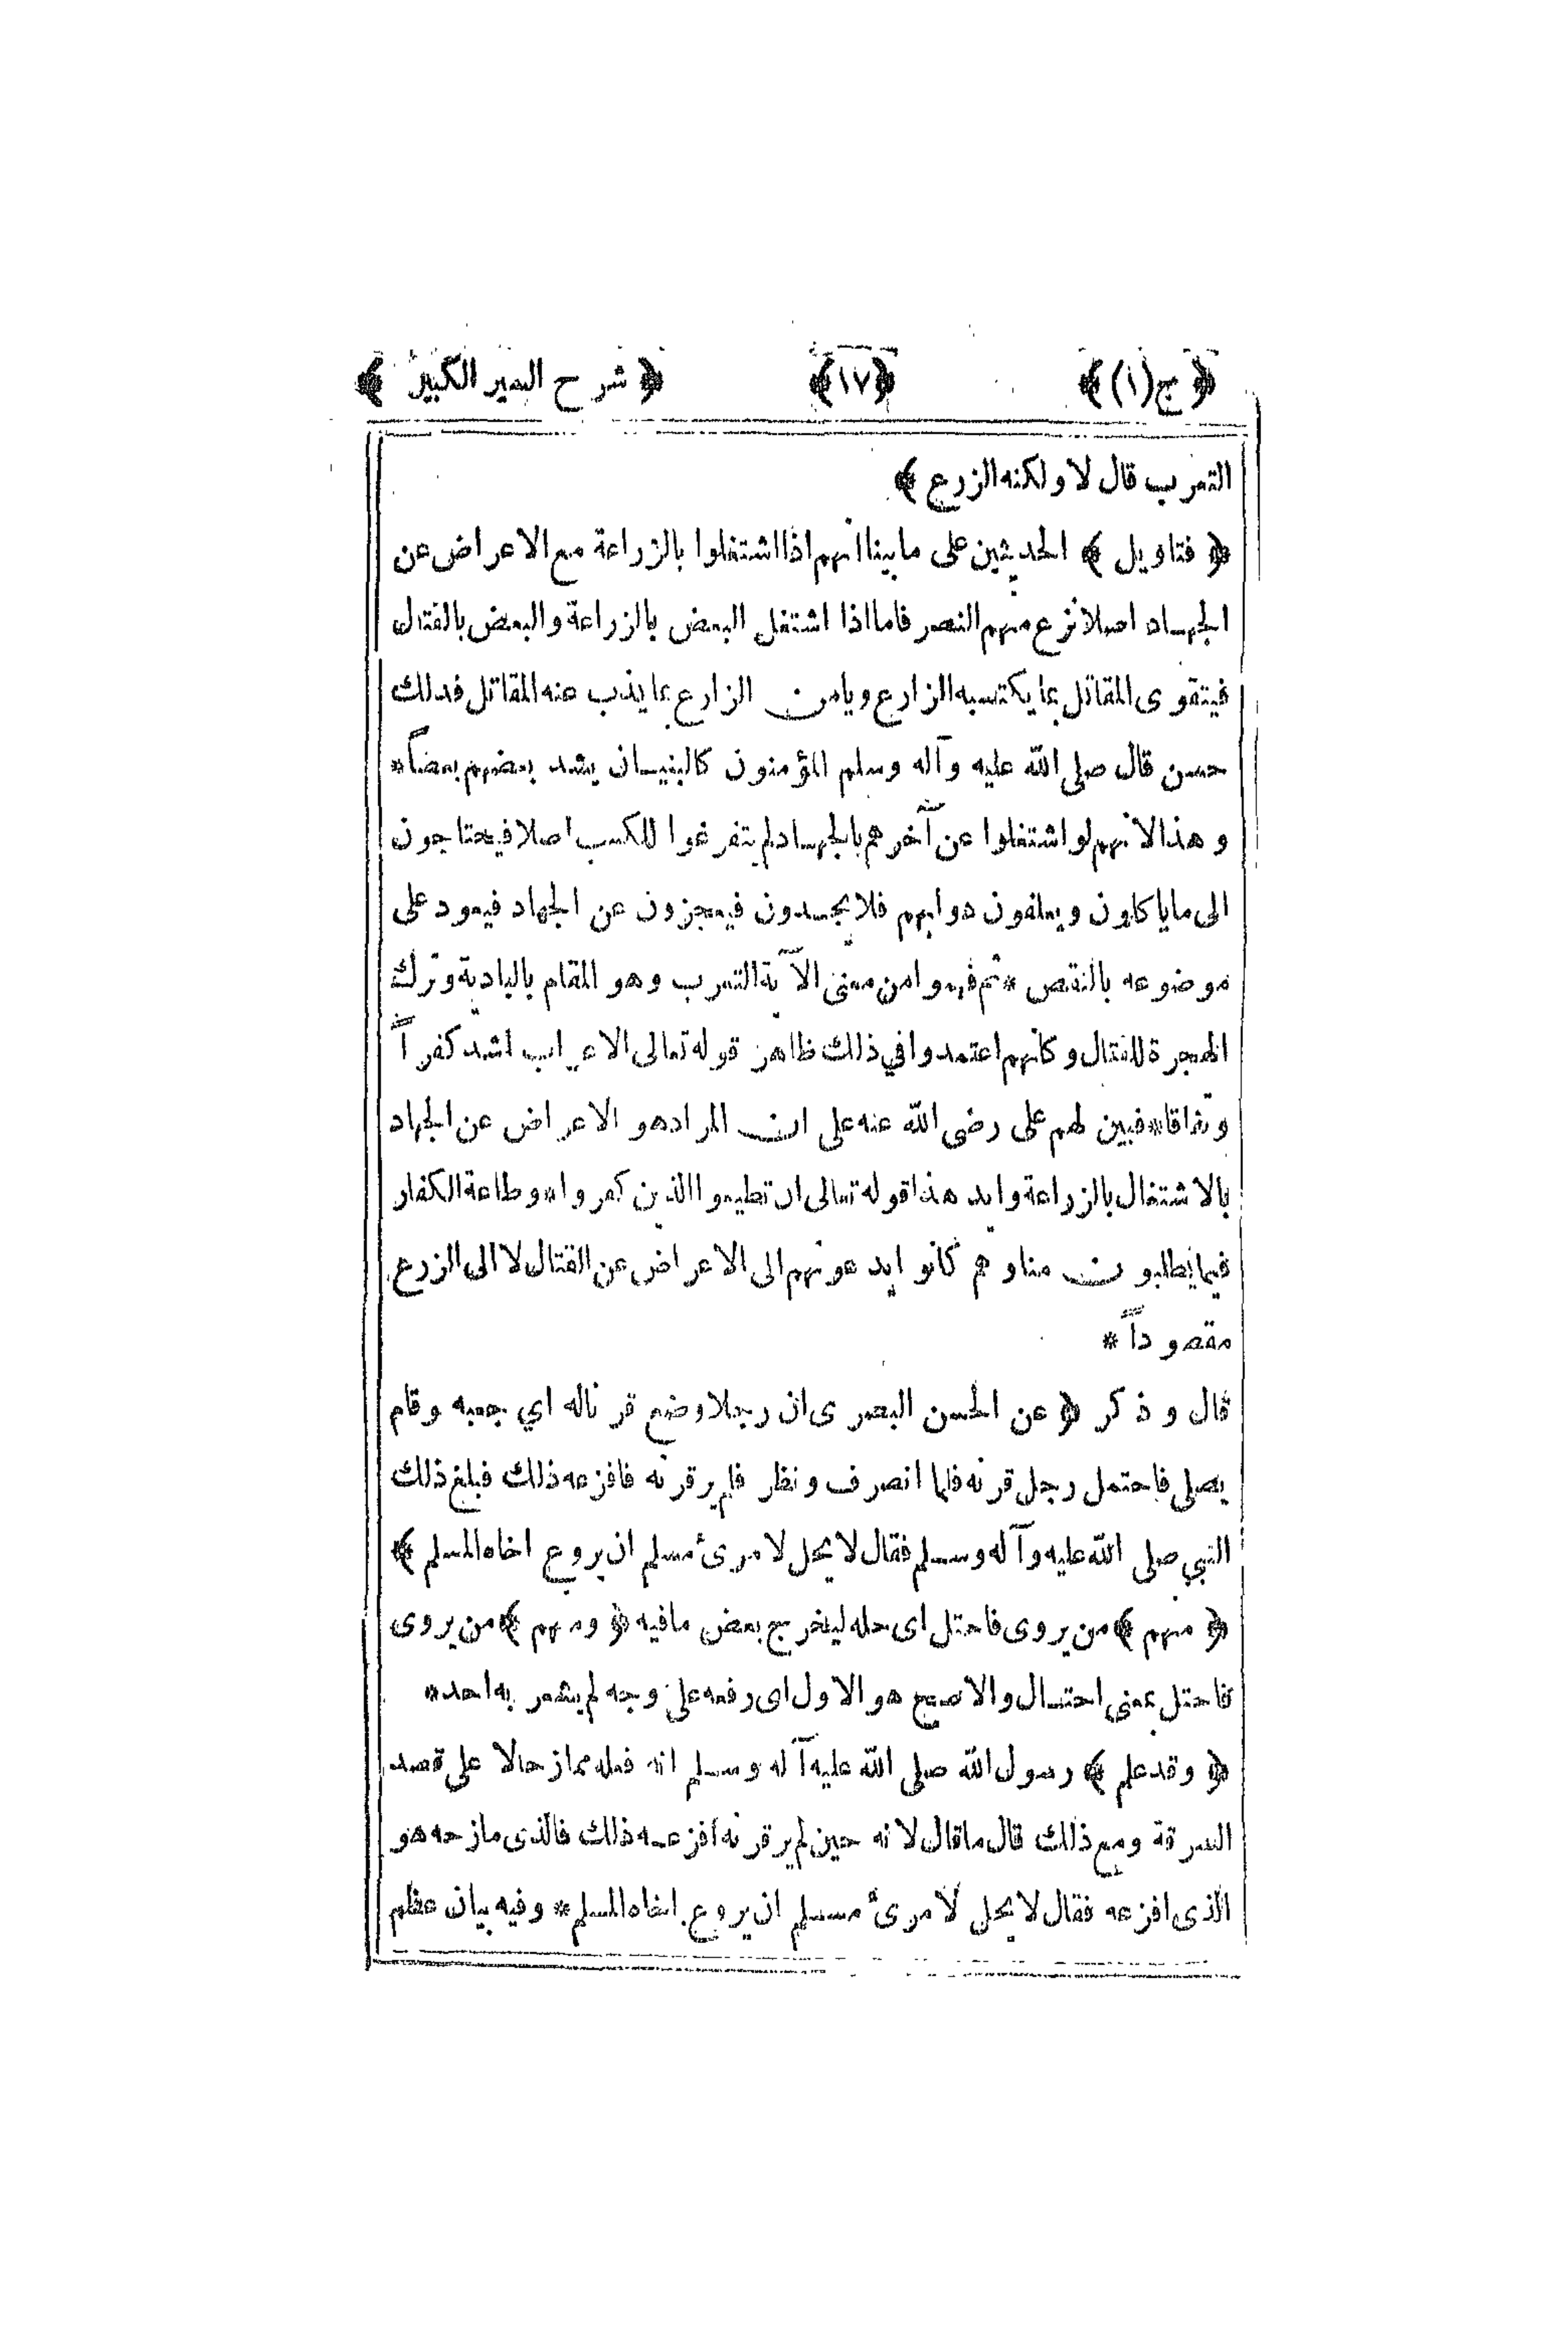 ﴿ ج(١) ﴾ ﴿١٧﴾ ﴿ شرح السير الكبير ﴾
التعرب قال لا ولكنه الزرع ﴾
﴿ فتاويل ﴾ الحديثين على ما بينا انهم اذا اشتغلوا بالزراعة مع الاعراض عن
الجهاد اصلا نزع منهم النصر فاما اذا اشتغل البعض بالزراعة والبعض بالقتال
فيتقوى المقاتل بما يكتسبه الزارع ويامن الزارع بما يذب عنه المقاتل فذلك
حسن قال صلى الله عليه وآله وسلم المؤمنون كالبنيان يشد بعضهم بعضاً*
وهذا لانهم لو اشتغلوا عن آخرهم بالجهاد لم يتفرغوا للكسب اصلا فيحتاجون
الى ما ياكلون ويعلفون دوابهم فلا يجدون فيعجزون عن الجهاد فيعود على
موضوعه بالنقص * ثم فهموا من معنى الآية التعرب وهو المقام بالبادية وترك
الهجرة للقتال وكانهم اعتمدوا في ذلك ظاهر قوله تعالى الاعراب اشد كفراً
ونفاقا* فبين لهم على رضى الله عنه على ان المراد هو الاعراض عن الجهاد
بالاشتغال بالزراعة وايد هذا قوله تعالى ان تطيعوا الذين كفروا* وطاعة الكفار
فيما يطلبون منا وهم كانوا يدعونهم الى الاعراض عن القتال لا الى الزرع
مقصوداً *
قال وذكر ﴿ عن الحسن البصرى ان رجلا وضع قرنا له اي جعبه وقام
يصلى فاحتمل رجل قرنه فلما انصرف ونظر فلم ير قرنه فافزعه ذلك فبلغ ذلك
النبي صلى الله عليه وآله وسلم فقال لا يحل لامرئ مسلم ان يروع اخاه المسلم ﴾
﴿ منهم ﴾ من يروى فاحتل اى حله ليخرج بعض ما فيه ﴿ ومنهم ﴾ من يروى
فاحتل بمعنى احتال والاصح هو الاول اى رفعه على وجه لم يشعر به احد*
﴿ وقد علم ﴾ رسول الله صلى الله عليه آله وسلم انه فعله ممازحا لا على قصد
السرقة ومع ذلك قال ما قال لانه حين لم ير قرنه افزعه ذلك فالذى مازحه هو
الذى افزعه فقال لا يحل لامرئ مسلم ان يروع اخاه المسلم * وفيه بيان عظم